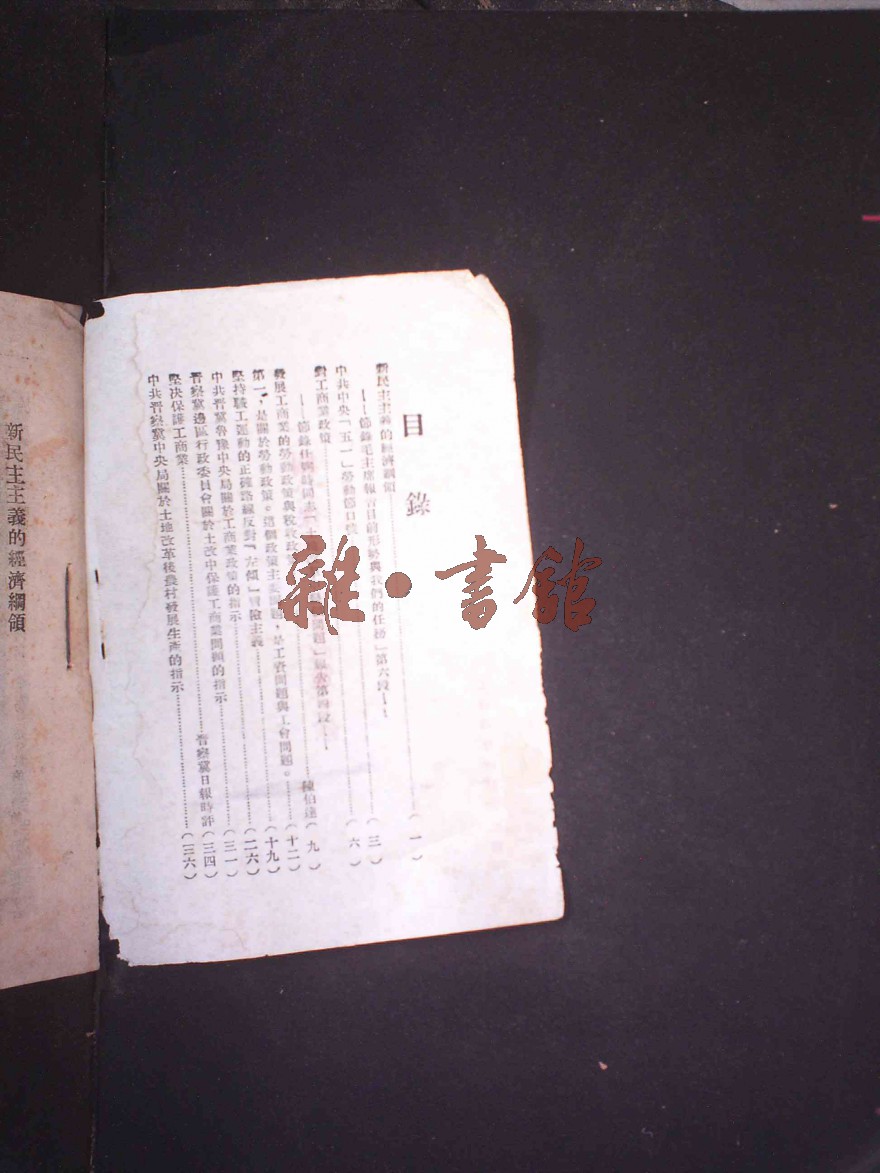 目錄
新民主主義的經濟綱領……(一)
——節錄毛主席報告目前形勢與我們的任務」第六段——
中共中央「五一」勞動節口號……(三)
對工商業政策……(六)
——節錄任弼時同志「土 問題」報告第四段——
發展工商業的勞動政策與稅收政 陳伯達(九)
第一,是關於勞動政策。這個政策主 題,是工資問題與工會問題。……(十二)
堅持職工運動的正確路線反對「左傾」冒險主義……(十九)
中共晉冀魯豫中央局關於工商業政策的指示……(二六)
晉察冀邊區行政委員會關於土改中保護工商業問題的指示……(三一)
堅决保護工商業……晉察冀日報時評(三四)
中共晉察冀中央局關於土地改革後農村發展生產的指示……(三六)
新民主主義的經濟綱領
雜·書館